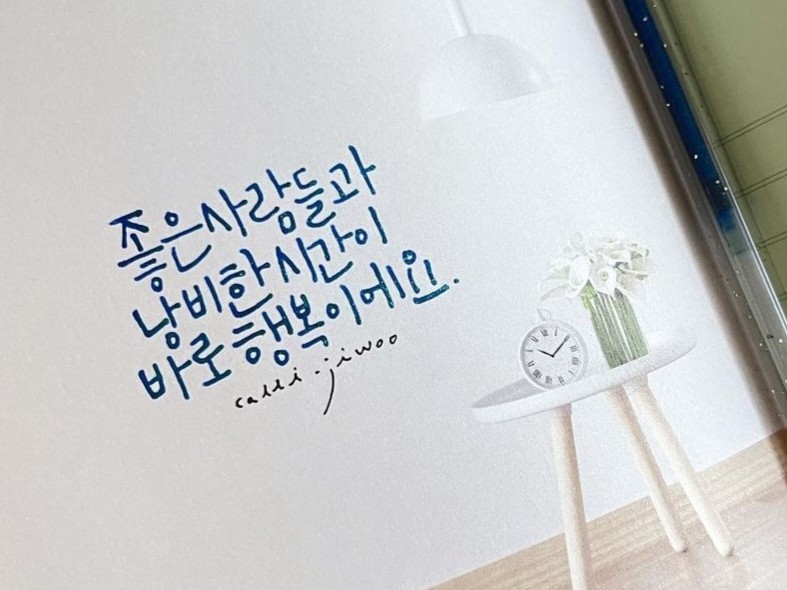 좋은사람들과
낭비한시간이
바로행복이에요.
calli.jiwoo